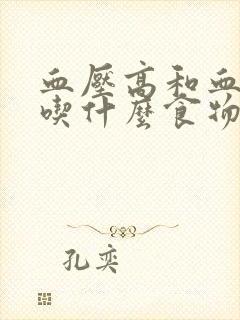 血壓高和血
喫什麼食物
孔奕